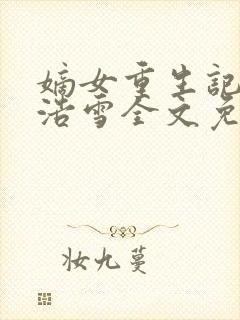 嫡女重生記
浩雪全文免
妆九蔓